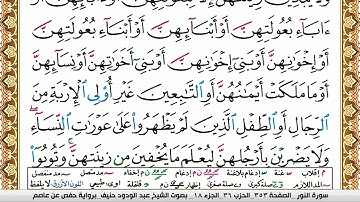 ءَابَآءِ بُعُولَتِهِنَّ أَوْ أَبْنَآئِهِنَّ أَوْ أَبْنَآءِ بُعُولَتِهِنَّ
أَوْ إِخْوَٰنِهِنَّ أَوْ بَنِىٓ إِخْوَٰنِهِنَّ أَوْ بَنِىٓ أَخَوَٰتِهِنَّ أَوْ نِسَآئِهِنَّ
أَوْ مَا مَلَكَتْ أَيْمَٰنُهُنَّ أَوِ ٱلتَّٰبِعِينَ غَيْرِ أُو۟لِى ٱلْإِرْبَةِ مِنَ
ٱلرِّجَالِ أَوِ ٱلطِّفْلِ ٱلَّذِينَ لَمْ يَظْهَرُوا۟ عَلَىٰ عَوْرَٰتِ ٱلنِّسَآءِ
وَلَا يَضْرِبْنَ بِأَرْجُلِهِنَّ لِيُعْلَمَ مَا يُخْفِينَ مِن زِينَتِهِنَّ وَتُوبُوٓا۟
سورة النور _ الصفحة ٣٥٣ _ الحزب ٣٦ _ الجزء ١٨ _ بصوت الشيخ عبد الودود حنيف _ برواية حفص عن عاصم